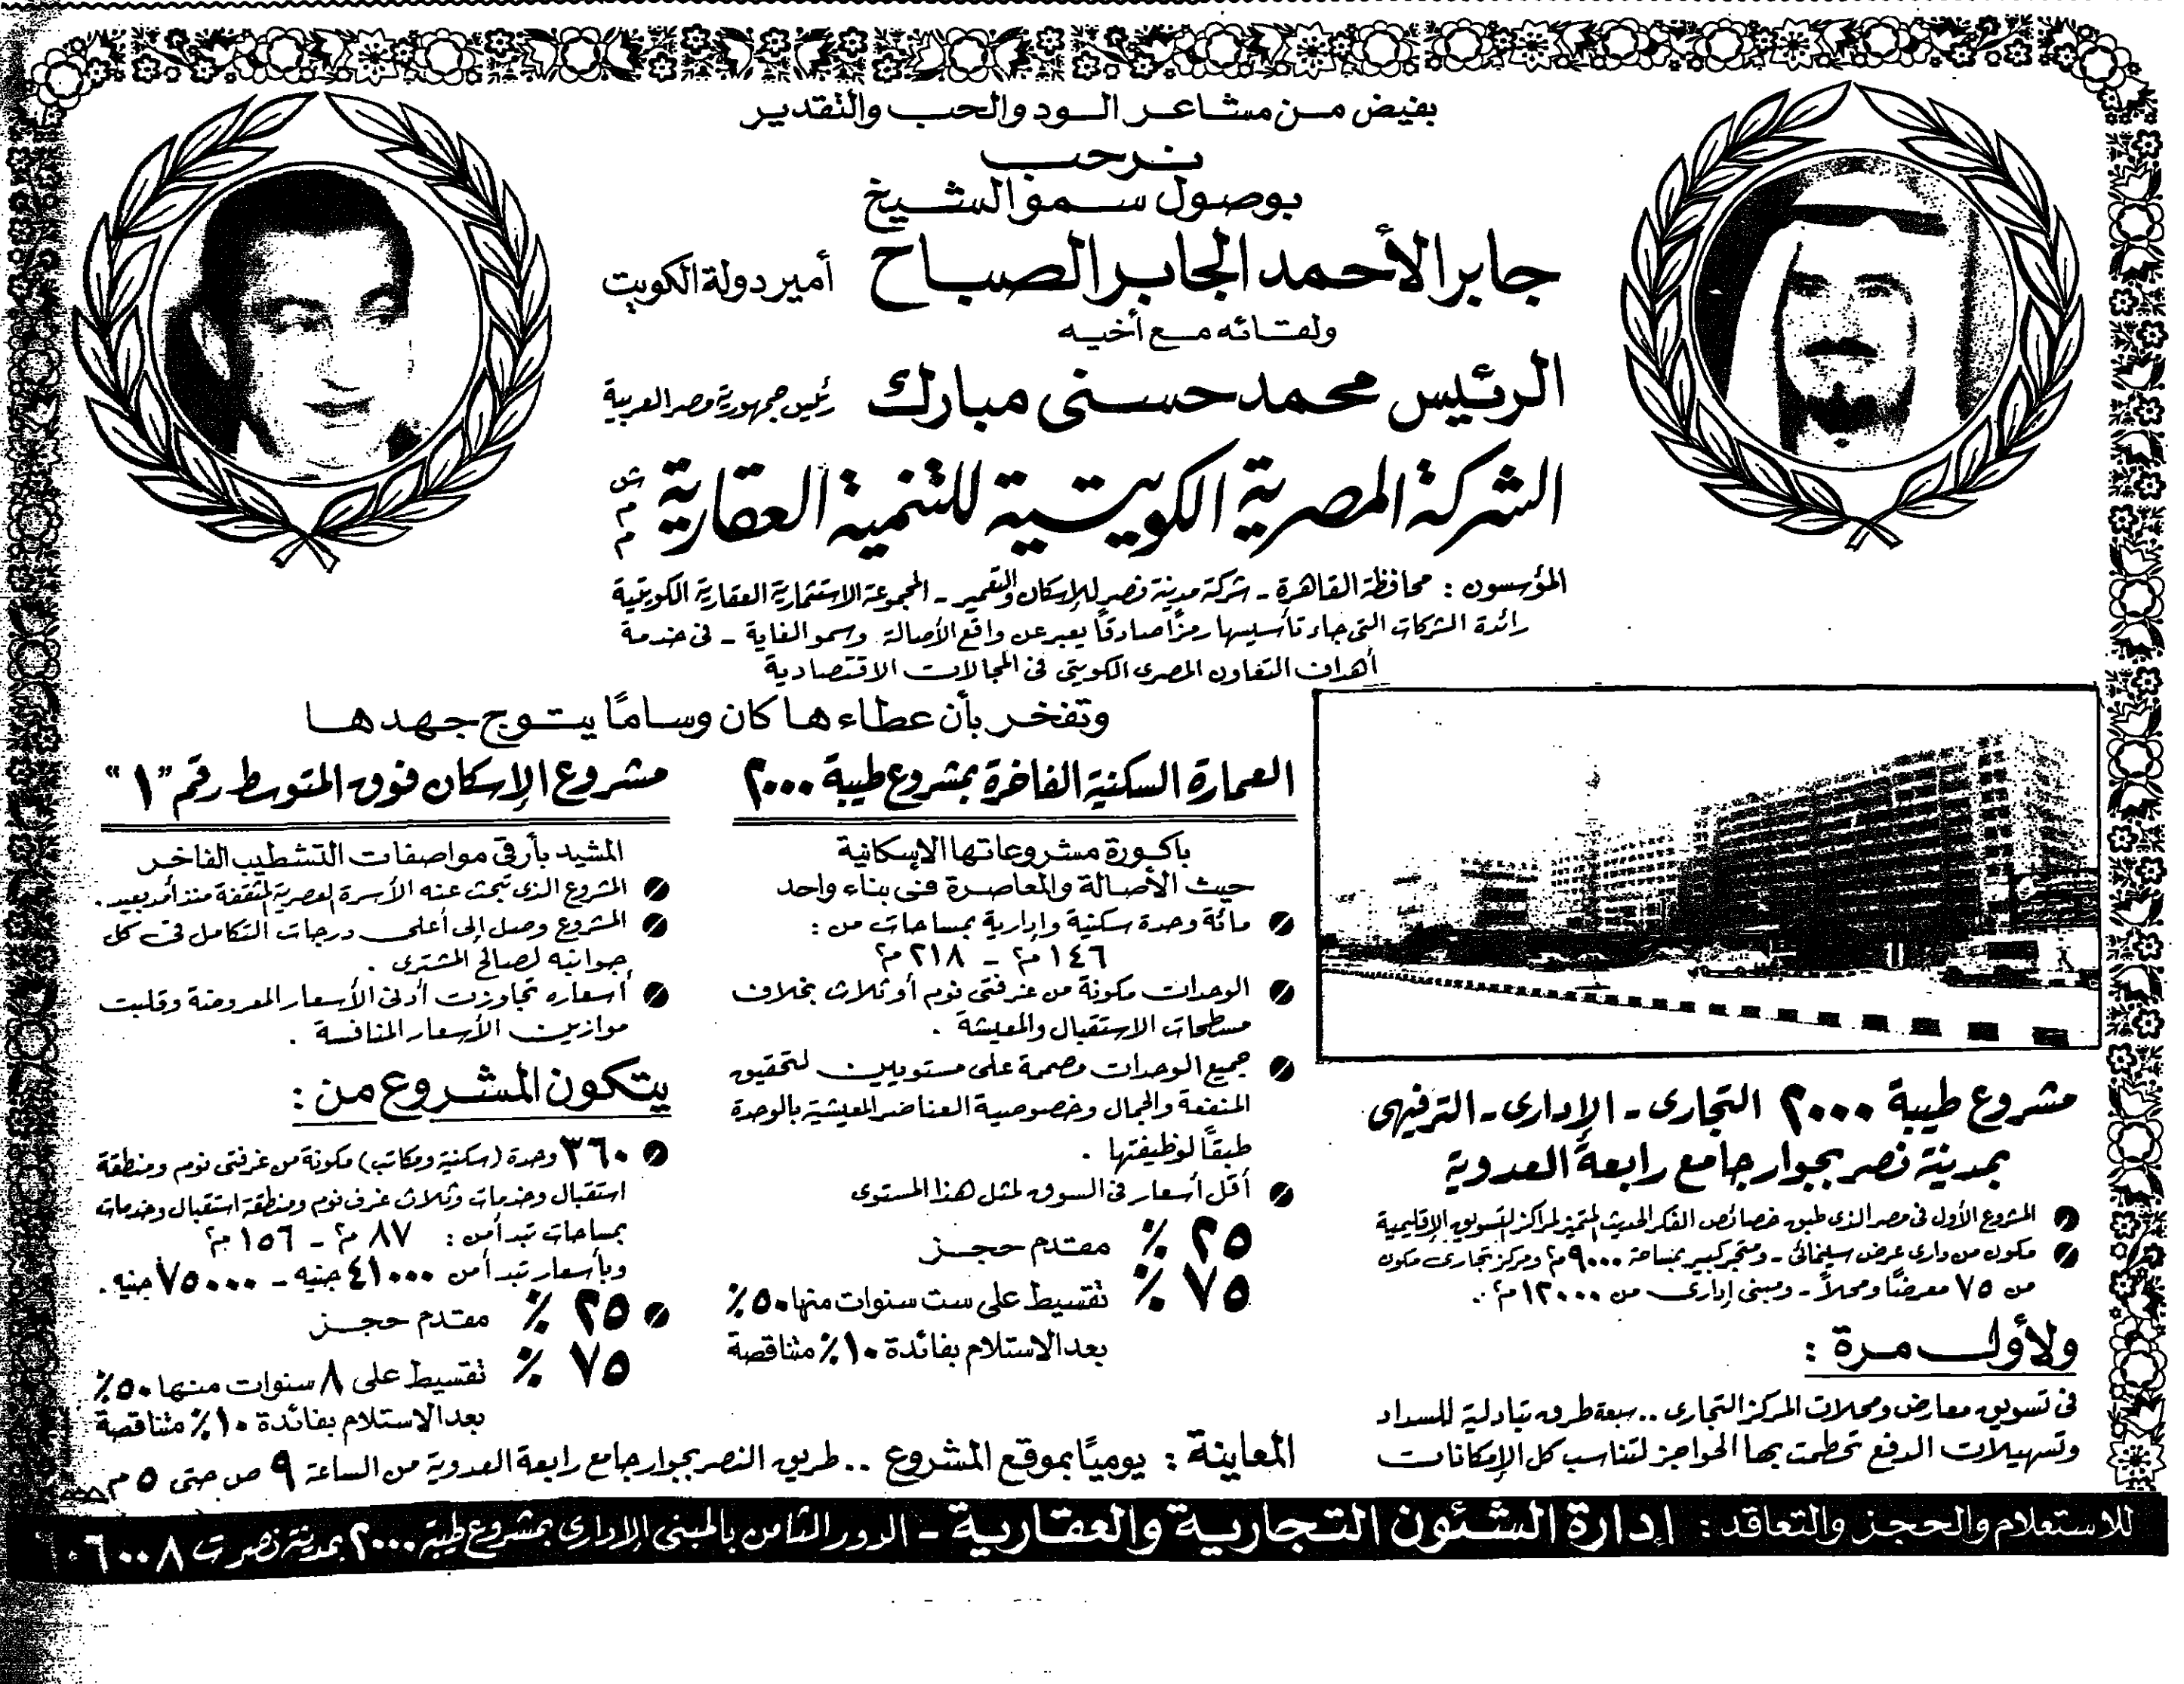 بفيض من مشاعر الود والحب والتقدير
نرحب
بوصول سمو الشيخ
جابر الأحمد الجابر الصباح أمير دولة الكويت
ولقائه مع أخيه
الرئيس محمد حسنى مبارك رئيس جمهورية مصر العربية
الشركة المصرية الكويتية للتنمية العقارية ش م م
المؤسسون : محافظة القاهرة - شركة مدينة نصر للإسكان والتعمير - المجموعة الاستثمارية العقارية الكويتية
رائدة الشركات التى جاء تأسيسها رمزًا صادقًا يعبر عن واقع الأصالة وسمو الغاية - فى خدمة
أهداف التعاون المصرى الكويتى فى المجالات الاقتصادية
وتفخر بأن عطاءها كان وسامًا يتوج جهدها
مشروع طيبة ٢٠٠٠ التجارى - الإدارى - الترفيهى
بمدينة نصر بجوار جامع رابعة العدوية
المشروع الأول فى مصر الذى طبق خصائص الفكر الحديث المتميز لمراكز التسويق الإقليمية
مكون من دارى عرض سينمائى - ومتجر كبير بمساحة ٩٠٠٠م٢ ومركز تجارى مكون
من ٧٥ معرضًا ومحلاً - ومبنى إدارى من ١٢٠٠٠م٢ .
ولأول مرة :
فى تسويق معارض ومحلات المركز التجارى .. سبعة طرق تبادلية للسداد
وتسهيلات الدفع تحطمت بها الحواجز لتناسب كل الإمكانات
العمارة السكنية الفاخرة بمشروع طيبة ٢٠٠٠
باكورة مشروعاتها الإسكانية
حيث الأصالة والمعاصرة فى بناء واحد
مائة وحدة سكنية وإدارية بمساحات من :
١٤٦م٢ - ٢١٨م٢
الوحدات مكونة من غرفتى نوم أو ثلاث بخلاف
مسطحات الاستقبال والمعيشة .
جميع الوحدات مصممة على مستويين لتحقيق
المنفعة والجمال وخصوصية العناصر المعيشية بالوحدة
طبقًا لوظيفتها .
أقل أسعار فى السوق لمثل هذا المستوى
٢٥ ٪ مقدم حجز
٧٥ ٪ تقسيط على ست سنوات منها ٥٠٪
بعد الاستلام بفائدة ١٠٪ متناقصة
مشروع الإسكان فوق المتوسط رقم "١"
المشيد بأرقى مواصفات التشطيب الفاخر
المشروع الذى تبحث عنه الأسرة العصرية المثقفة منذ أمد بعيد .
المشروع وصل إلى أعلى درجات التكامل فى كل
جوانبه لصالح المشترى .
أسعاره تجاوزت أدنى الأسعار المعروضة وقلبت
موازين الأسعار المنافسة .
يتكون المشروع من :
٣٦٠ وحدة (سكنية ومكاتب) مكونة من غرفتى نوم ومنطقة
استقبال وخدمات وثلاث غرف نوم ومنطقة استقبال وخدمات
بمساحات تبدأ من : ٨٧ م٢ - ١٥٦ م٢
وبأسعار تبدأ من ٤١٠٠٠ جنيه - ٧٥٠٠٠ جنيه .
٢٥ ٪ مقدم حجز
٧٥ ٪ تقسيط على ٨ سنوات منها ٥٠٪
بعد الاستلام بفائدة ١٠٪ متناقصة
المعاينة : يوميًا بموقع المشروع .. طريق النصر بجوار جامع رابعة العدوية من الساعة ٩ ص حتى ٥ م
للاستعلام والحجز والتعاقد : إدارة الشئون التجارية والعقارية - الدور الثامن بالمبنى الإدارى بمشروع طيبة ٢٠٠٠ بمدينة نصر ت ٦٠٦٠٠٨